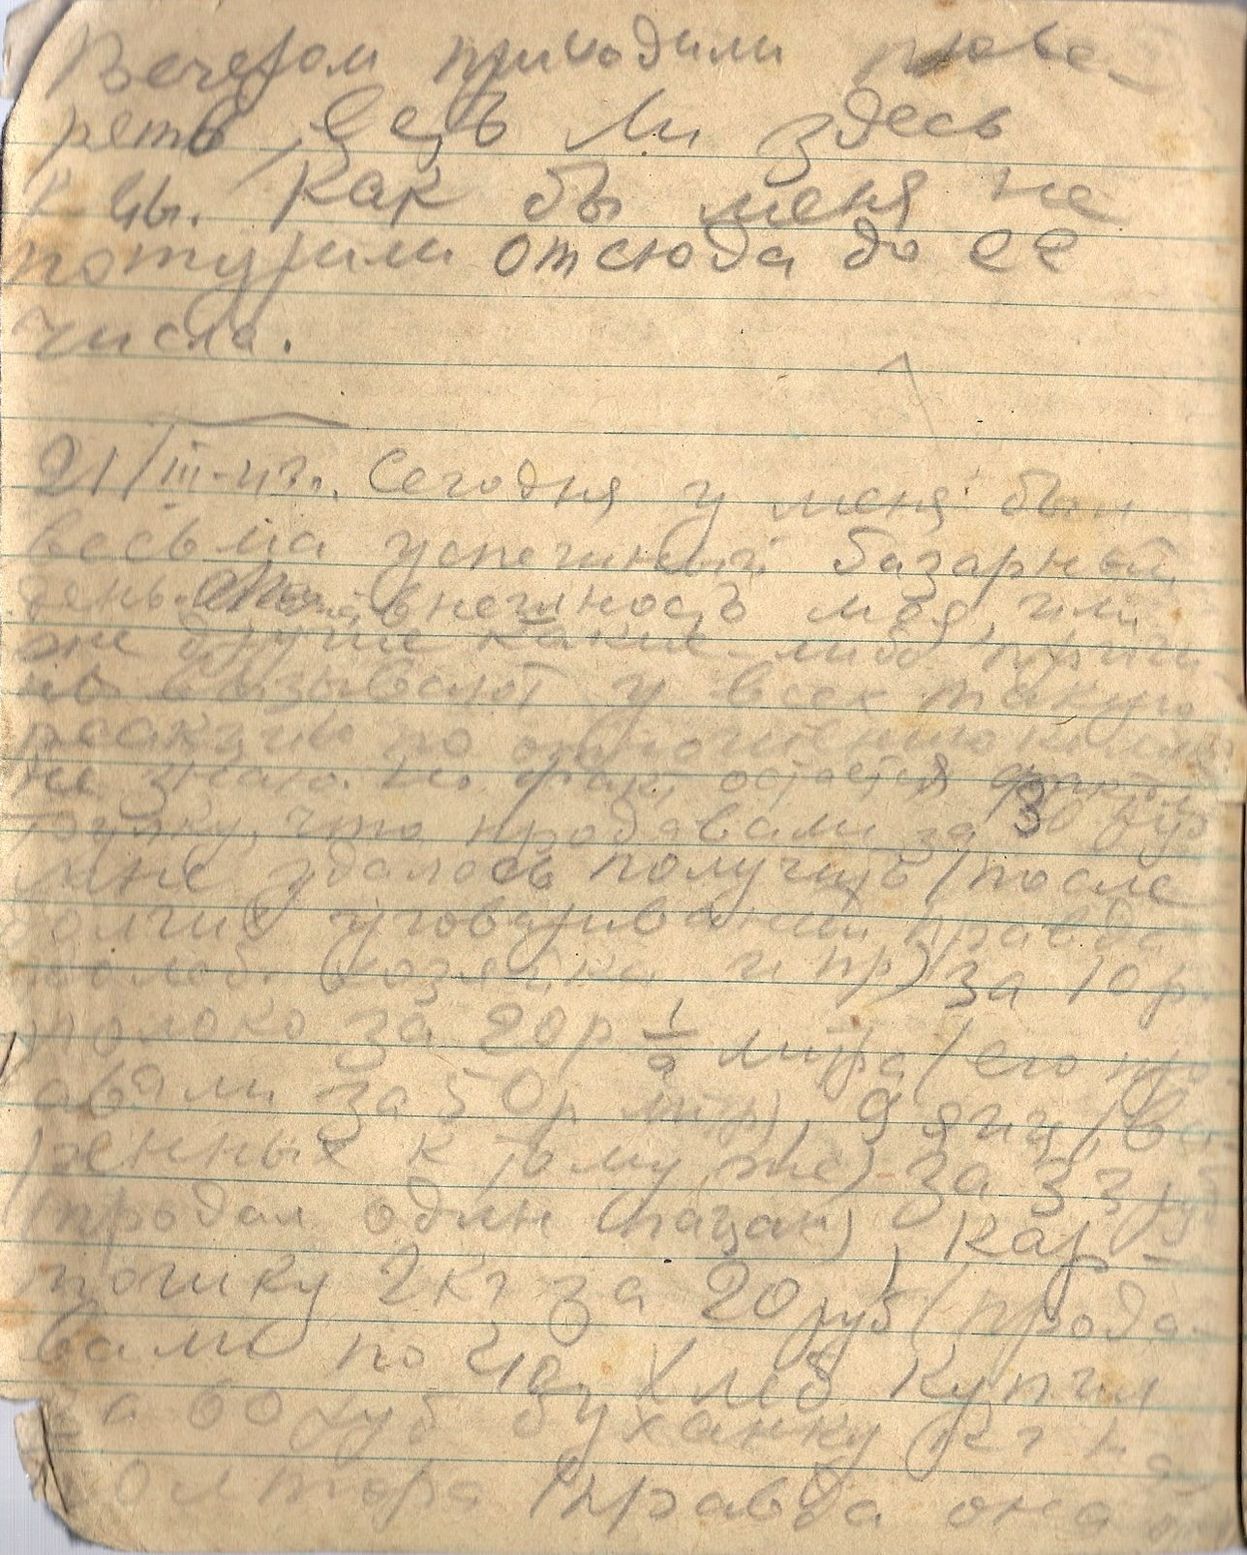 Вечером приходили прове-
рять, есть ли здесь
к-цы. Как бы меня не
потурили отсюда до 22
числа.
21/III-43г. Сегодня у меня был
весьма успешный базарный
день. внешность моя, или
же другие какие-либо причи
ны вызывают у всех такую
реакцию по отношению ко мне
не знаю. Но факт остается фактом
что продавали за 30 руб
мне удалось получить (после
долгих уговариваний правда
хозяйка и пр) за 10 р.
молоко за 20 р 1/2 литра (его про
давали за 50р литр), 9 яиц (ва-
ренных к тому же) за 33 руб
(продал один пацан), кар-
тошку 2 кг за 20 руб (прода-
вали по 40. Хлеб купил
за 60 руб буханку кг на
полтора (правда она